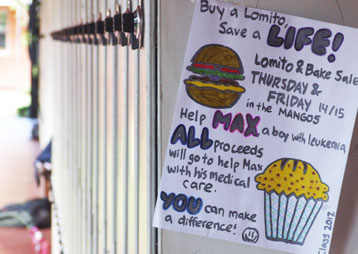 Buy a Lomito,
Save a
LIFE!
Lomito & Bake Sale
THURSDAY &
FRIDAY 14/15
in the MANGOS
Help MAX a boy with leukemia
ALL proceeds
will go to help Max
with his medical
care.
YOU can make
a difference!
Class 2012